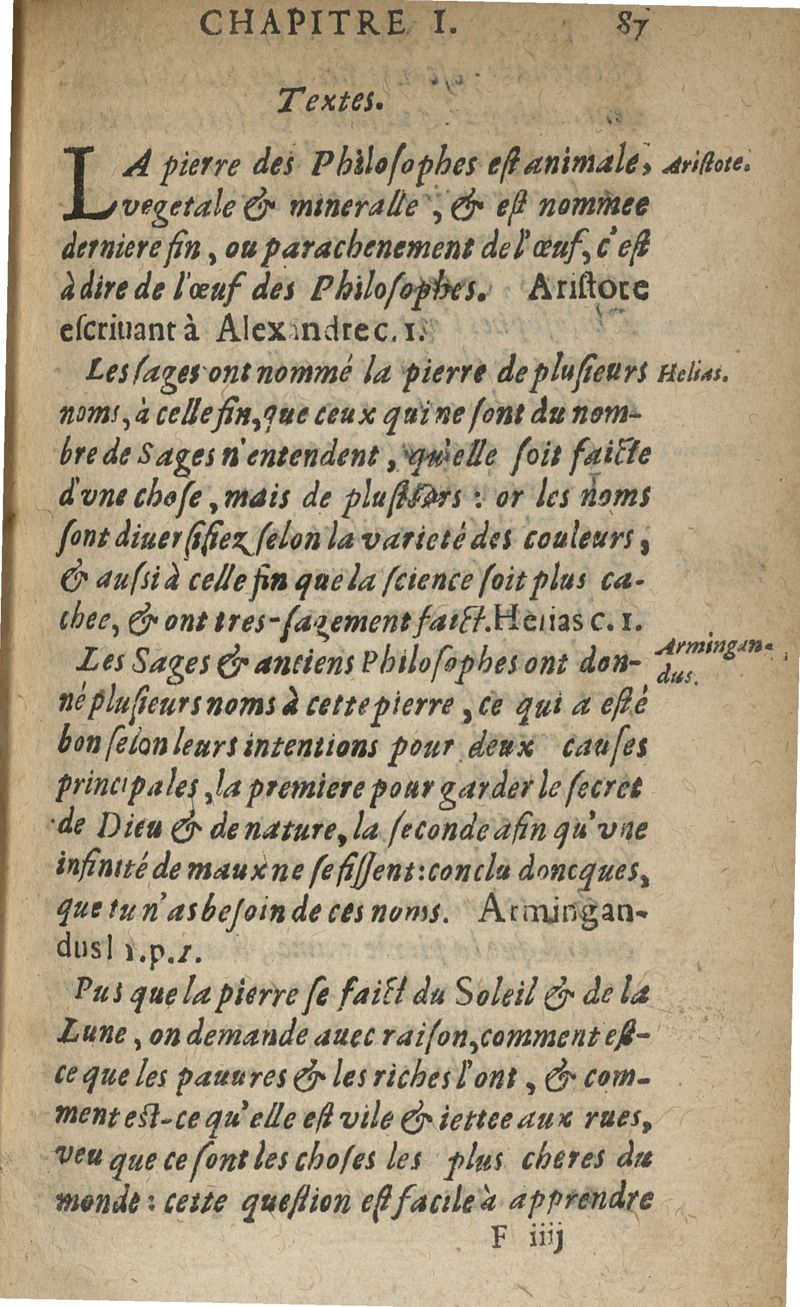 CHAPITRE I. 87
Textes.
LA pierre des Philosophes est animale, Aristote.
vegetale & mineralle, & est nommee
derniere fin, ou parachenement de l'œuf, c'est
à dire de l'œuf des Philosophes. Aristote
escriuant à Alexandre c. 1.
Les sages ont nommé la pierre de plusieurs Helias.
noms, à celle fin, que ceux qui ne sont du nom-
bre de Sages n'entendent, qu'elle soit faicte
d'vne chose, mais de plusieurs : or les noms
sont diuersifiez selon la varieté des couleurs,
& aussi à celle fin que la science soit plus ca-
chee, & ont tres-sagement faict. Helias c. 1.
Les Sages & anciens Philosophes ont don- Armingan-
né plusieurs noms à cette pierre, ce qui a esté dus.
bon selon leurs intentions pour deux causes
principales, la premiere pour garder le secret
de Dieu & de nature, la seconde afin qu'vne
infinité de maux ne se fissent: conclu doncques,
que tu n'as besoin de ces noms. Armingan-
dus l 1. p. 1.
Puis que la pierre se faict du Soleil & de la
Lune, on demande auec raison, comment est-
ce que les pauures & les riches l'ont, & com-
ment est-ce qu'elle est vile & iettee aux rues,
veu que ce sont les choses les plus cheres du
monde : cette question est facile à apprendre
F iiij